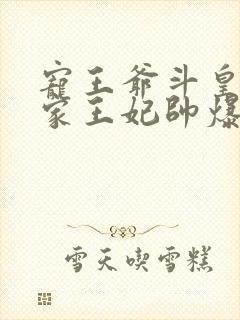 寵王爺斗皇
家王妃帥爆
雪天喫雪糕